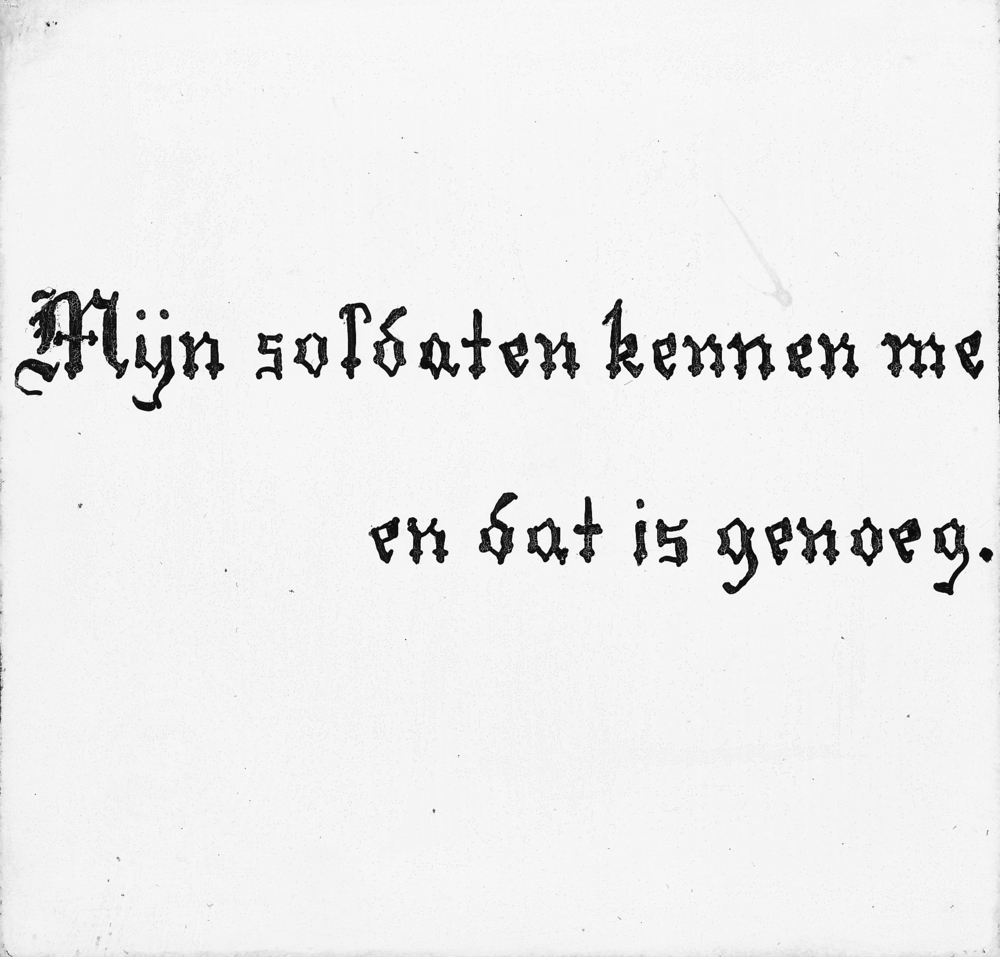 Mijn soldaten kennen me
en dat is genoeg.